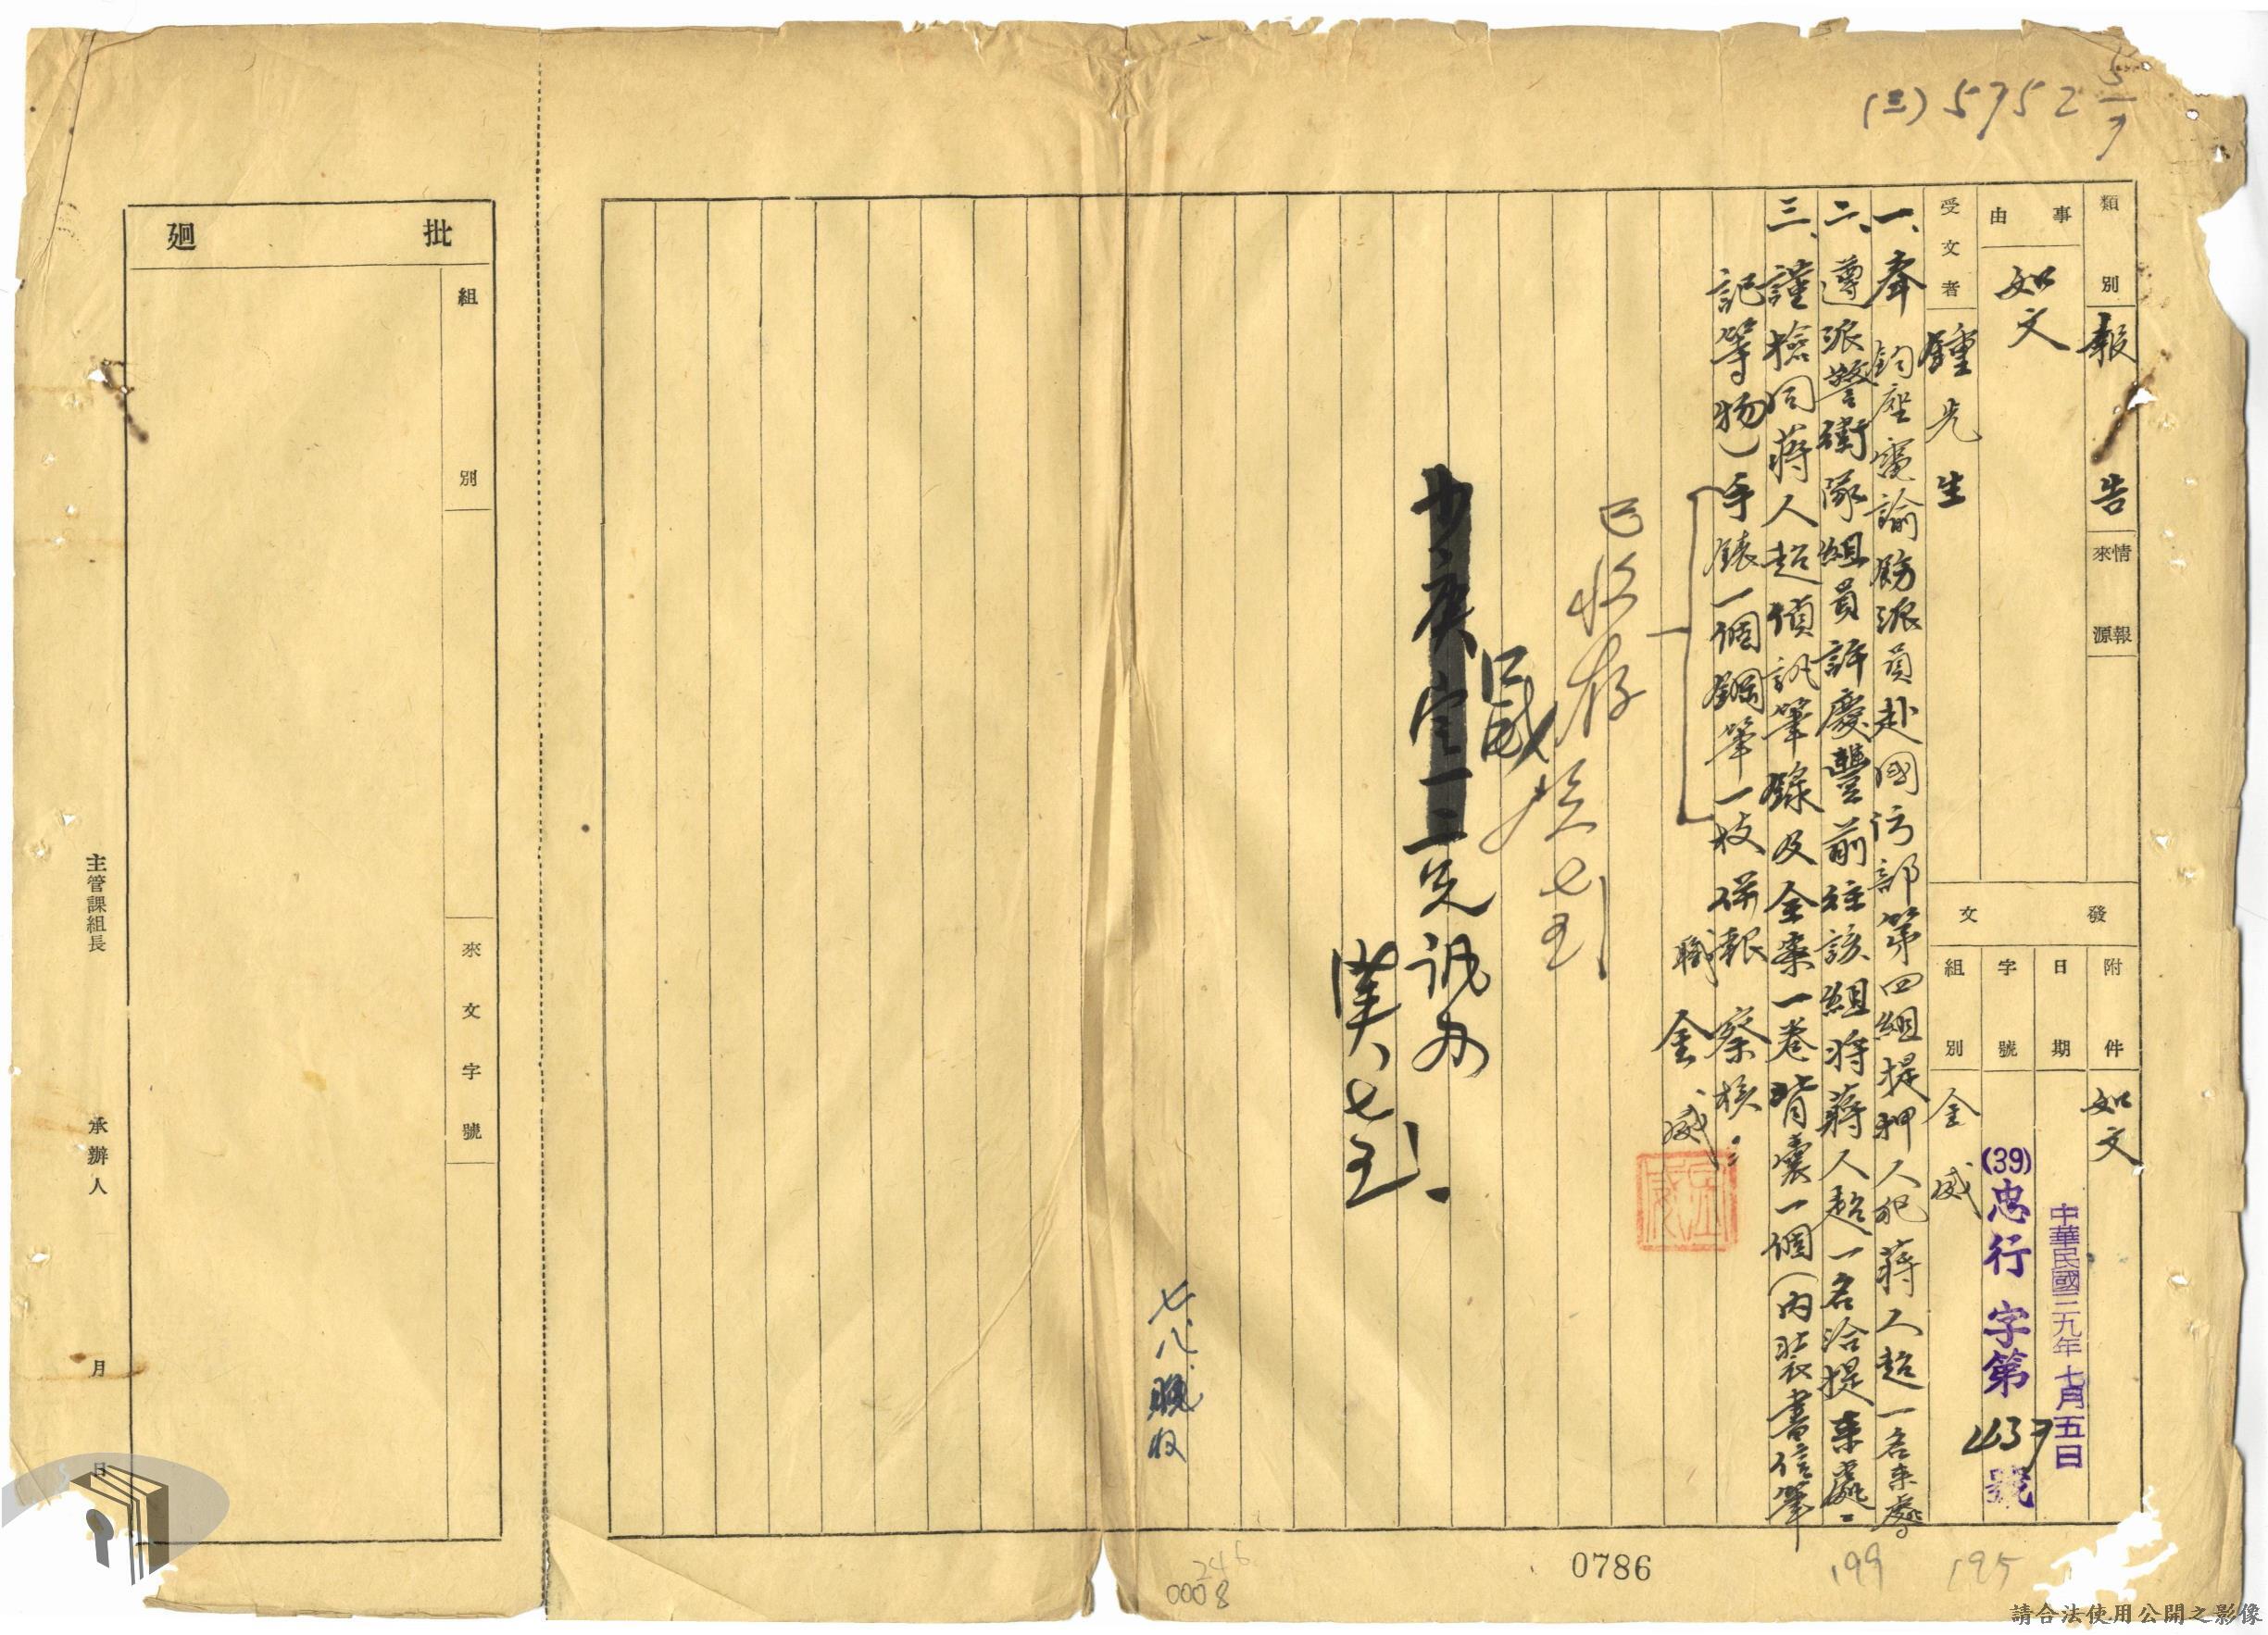 (三) 5752 5/7
類別 報告
情報來源
事由 如文
受文者 鍾先生
發文
附件 如文
日期 中華民國三九年七月五日
字號 (39)忠行字第437號
組別 金威
一、奉 鈞座電諭飭派員赴國防部第四組提押人犯蔣人超一名來處
二、遵派警衛隊組員許慶豐前往該組將蔣人超一名洽提來處。
三、謹檢同蔣人超偵訊筆錄及全案一卷背囊一個(內裝書信筆
記等物)手錶一個鋼筆一枝併報 察核：
職 金威
已收存
七五
誠亦
七五
七、八、收
批廻
組別
來文字號
主管課組長
承辦人
月
日
0008
246
0786
199
195
請合法使用公開之影像